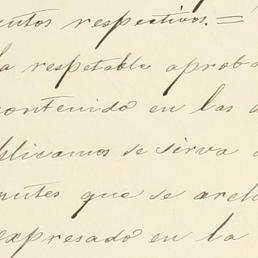 entos respectivos. =
la respetable aproba
contenido en las a
plicamos se sirva
entes que se arch
expresado en la